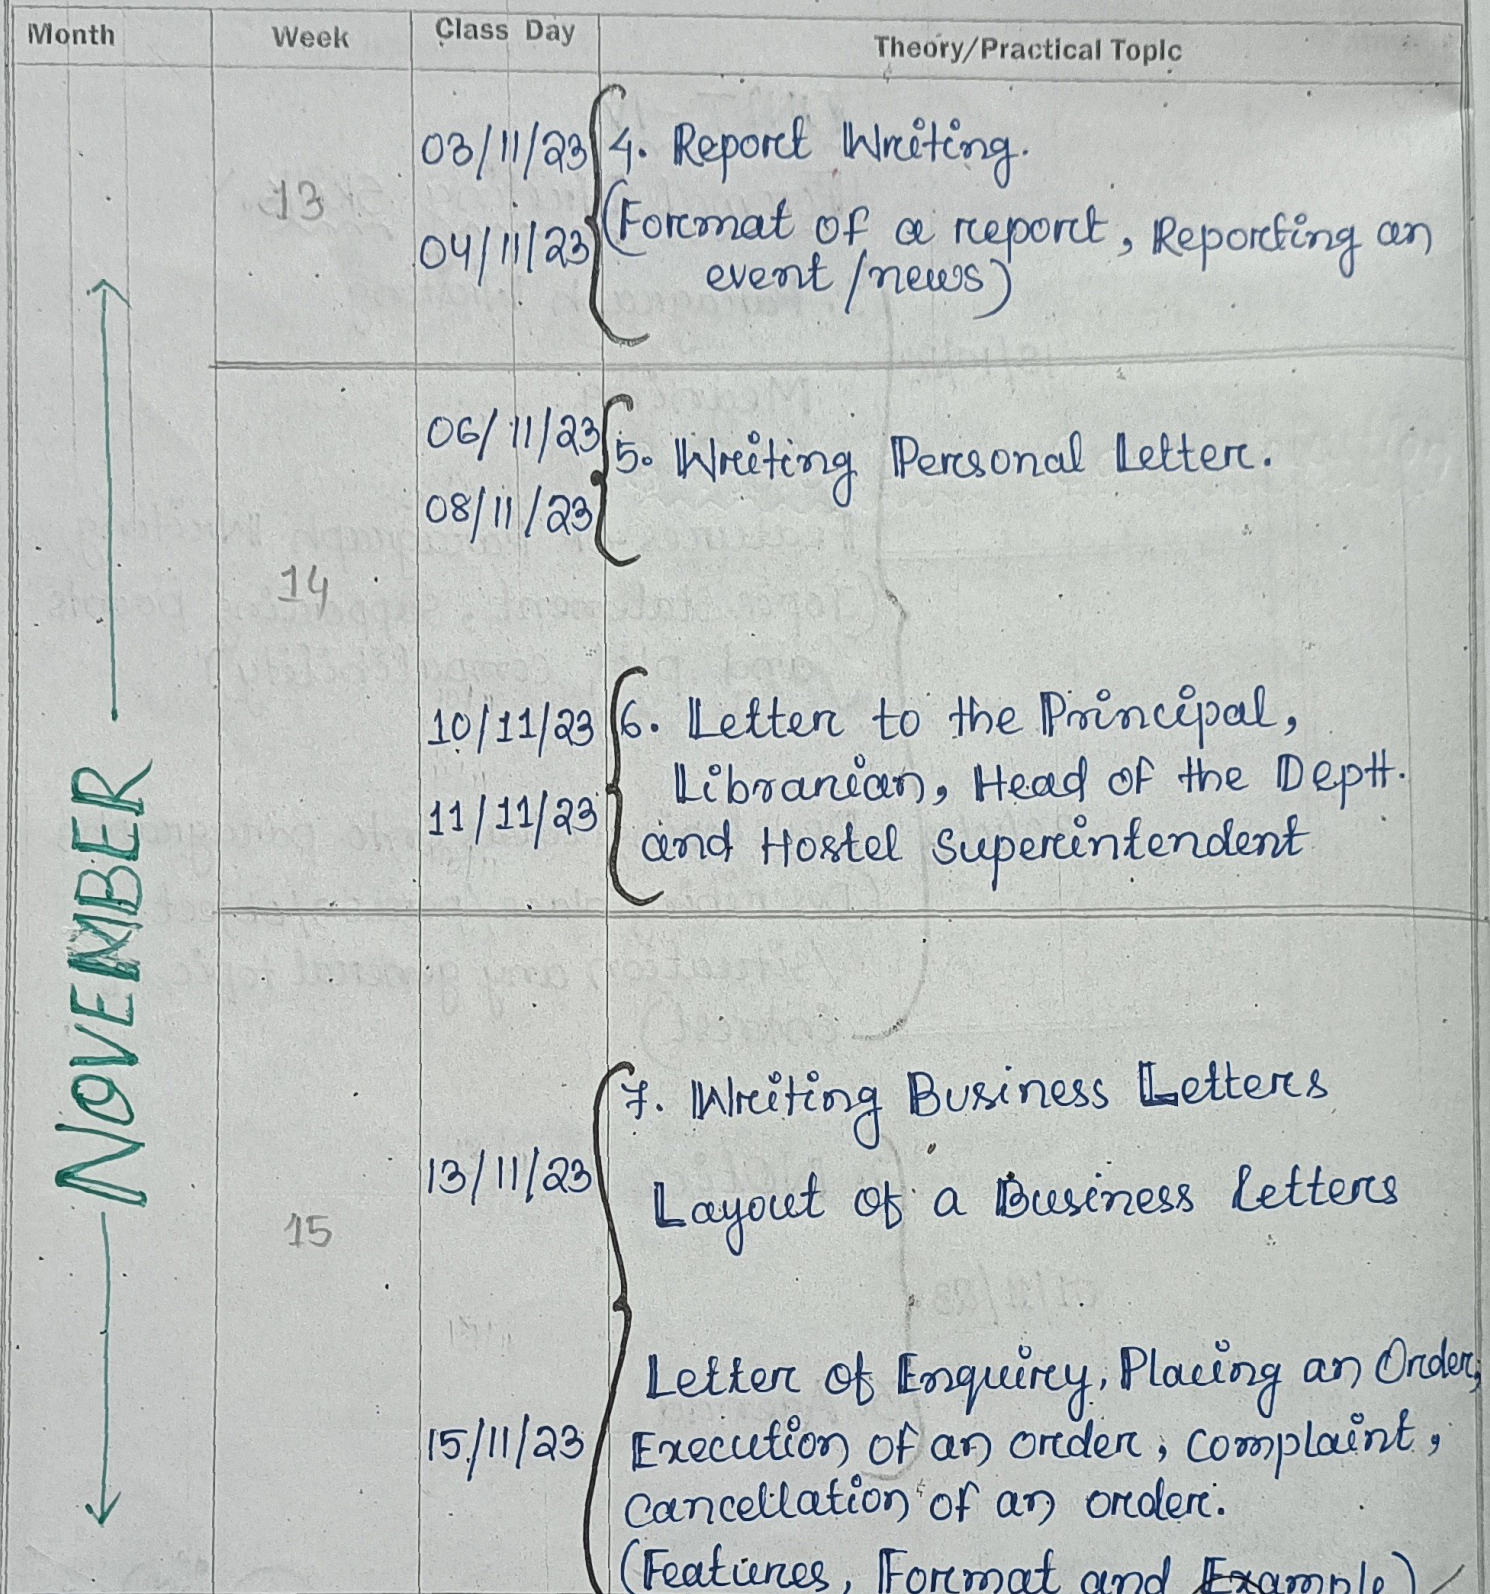 Month Week Class Day Theory/Practical Topic
NOVEMBER
13
03/11/23 4. Report Writing.
04/11/23 (Format of a report, Reporting an
event/news)
14
06/11/23 5. Writing Personal Letter.
08/11/23
10/11/23 6. Letter to the Principal,
Librarian, Head of the Deptt.
11/11/23 and Hostel Superintendent
15
7. Writing Business Letters
13/11/23 Layout of a Business Letters
Letter of Enquiry, Placing an Order,
15/11/23 Execution of an order, Complaint,
Cancellation of an order.
(Features, Format and Example)